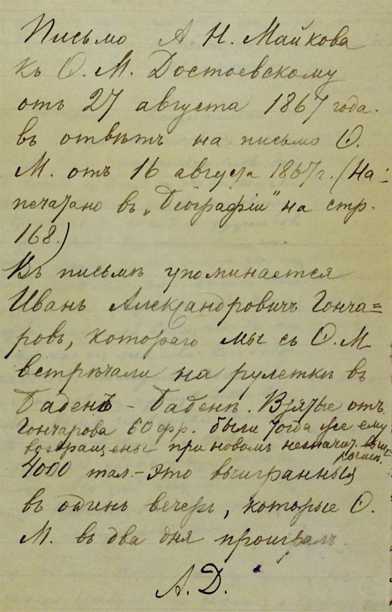 Письмо А. Н. Майкова
къ Ѳ. М. Достоевскому
отъ 27 августа 1867 года.
въ отвѣтъ на письмо Ѳ.
М. отъ 16 августа 1867 г. (На-
печатано въ „Біографіи" на стр.
168.)
Въ письмѣ упоминается
Иванъ Александровичъ Гонча=
ровъ, котораго мы съ Ѳ. М
встрѣчали на рулеткѣ въ
Баденъ - Баденѣ. Взятые отъ
Гончарова 60 фр. были тогда уже ему
возвращены при новомъ незначит.
4000 тал - это выигранныя
въ одинъ вечеръ, которые Ѳ.
М. въ два дня проигралъ.
А. Д.